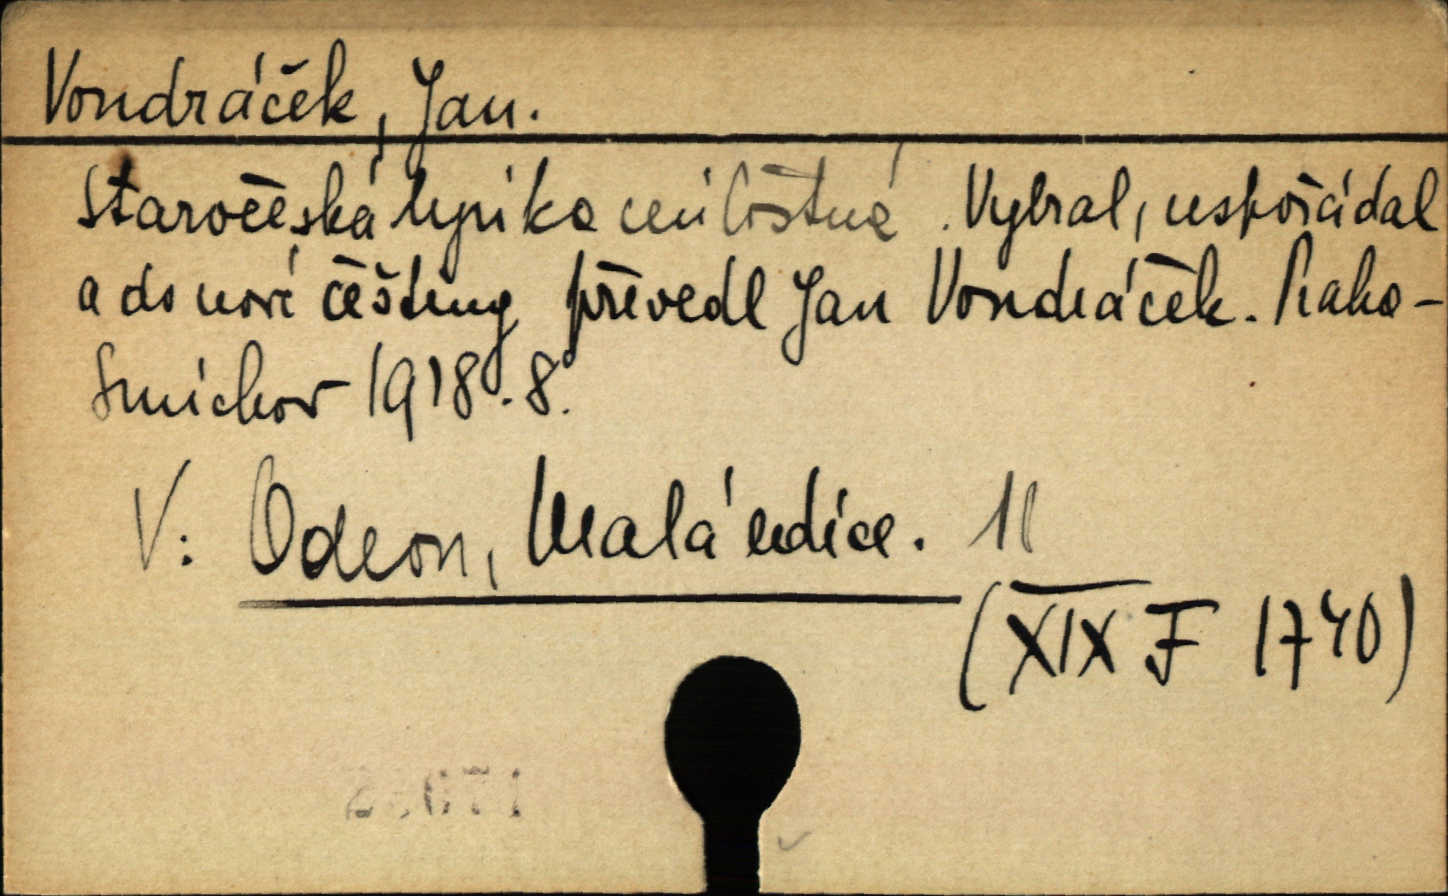 Vondráček, Jan.
Staročeská lyrika milostná. Vybral, uspořádal
a do nové češtiny převedl Jan Vondráček. Praha-
Smíchov 1918. 8°.
V: Odeon, Malá edice. 11
(XIX F 1740)